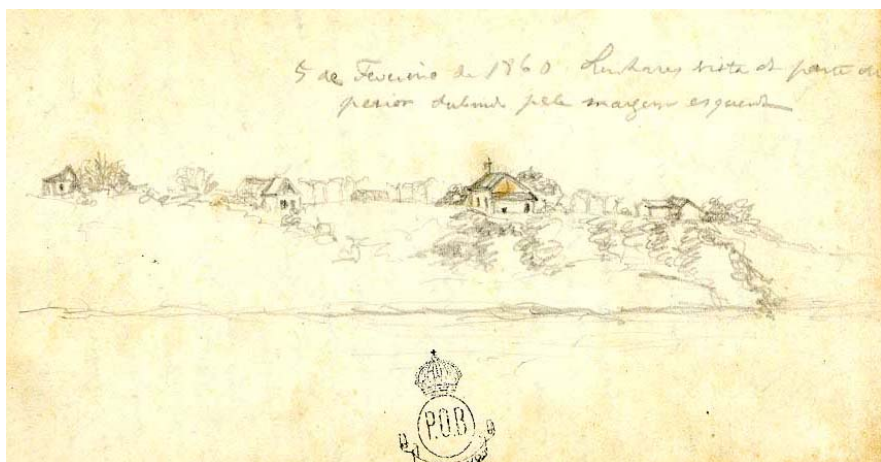 5 de Fevereiro de 1860 Linhares vista da parte su
perior subindo pela margem esquerda
P.O.B